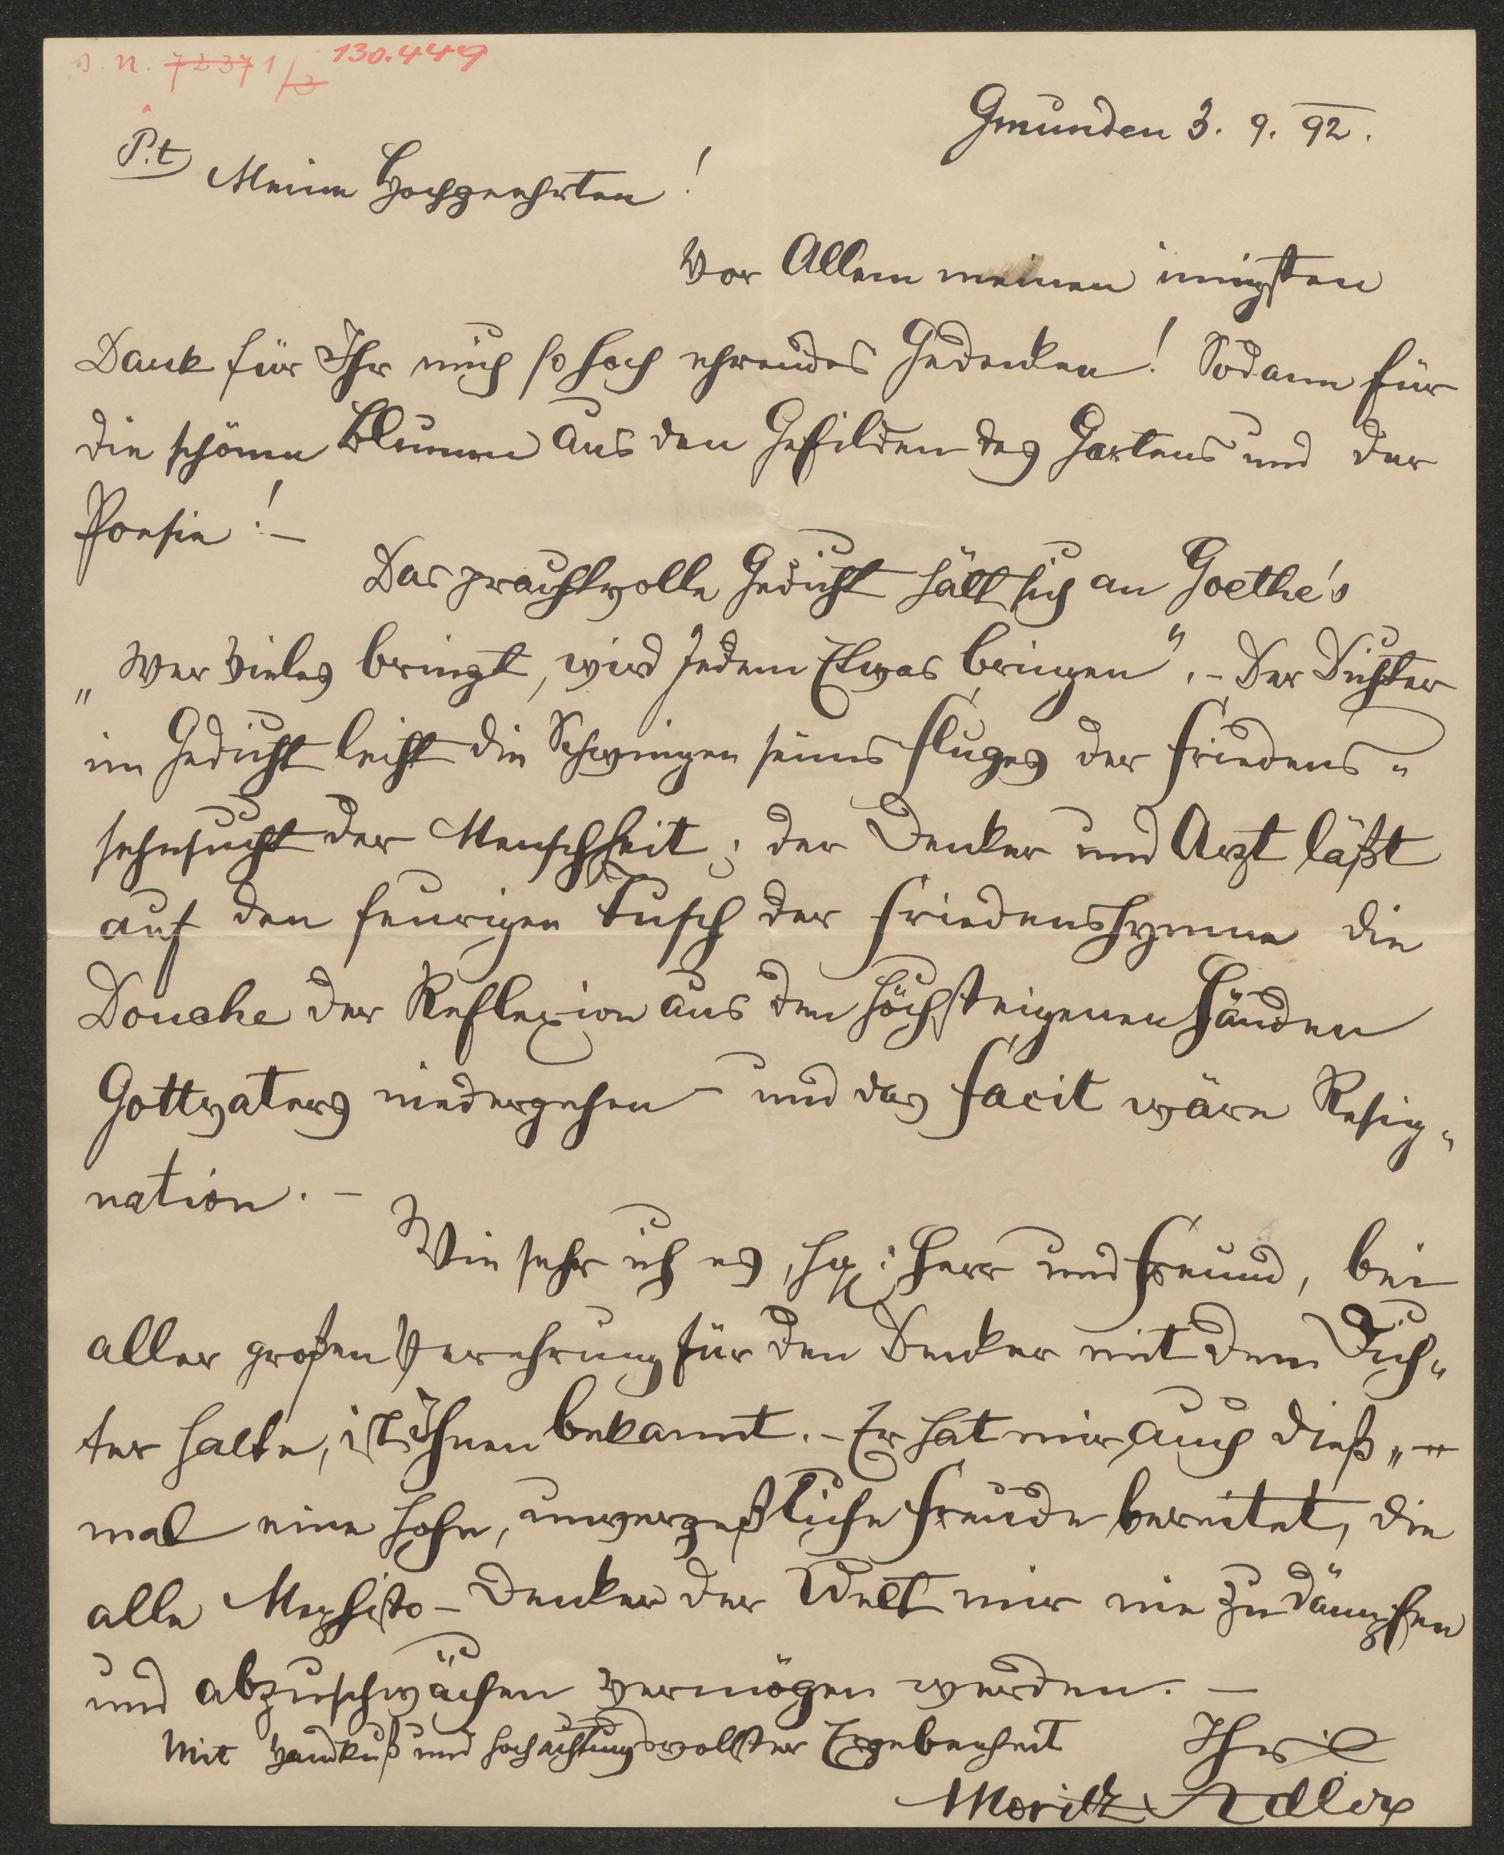 J. N. 72371/3 130.449
Gmunden 3. 9. 92.
P.t Meine Hochgeehrten!
Vor Allem meinen innigsten
Dank für Ihr mich so hoch ehrendes Gedenken! Sodann für
die schönen Blumen aus den Gefilden des Gartens und der
Poesie! –
Das prachtvolle Gedicht hält sich an Goethe's
„Wer Vieles bringt, wird Jedem Etwas bringen“. – Der Dichter
im Gedicht leiht die Schwingen seines Fluges der Friedens-
sehnsucht der Menschheit; der Denker und Arzt läßt
auf den feurigen Tusch der Friedenshymne die
Douche der Reflexion aus den höchsteigenen Händen
Gottvaters niedergehen – und das Facit wäre Resig-
nation. –
Wie sehr ich es, Herr und Freund, bei
aller großen Verehrung für den Denker mit dem Dich-
ter halte, ist Ihnen bekannt. – Er hat mir auch dieß-
mal eine hohe, unvergeßliche Freude bereitet, die
alle Mephisto-Denker der Welt mir nie zu dämpfen
und abzuschwächen vermögen werden. –
Mit Handkuß und hochachtungsvollster Ergebenheit Ihr
Moritz Adler